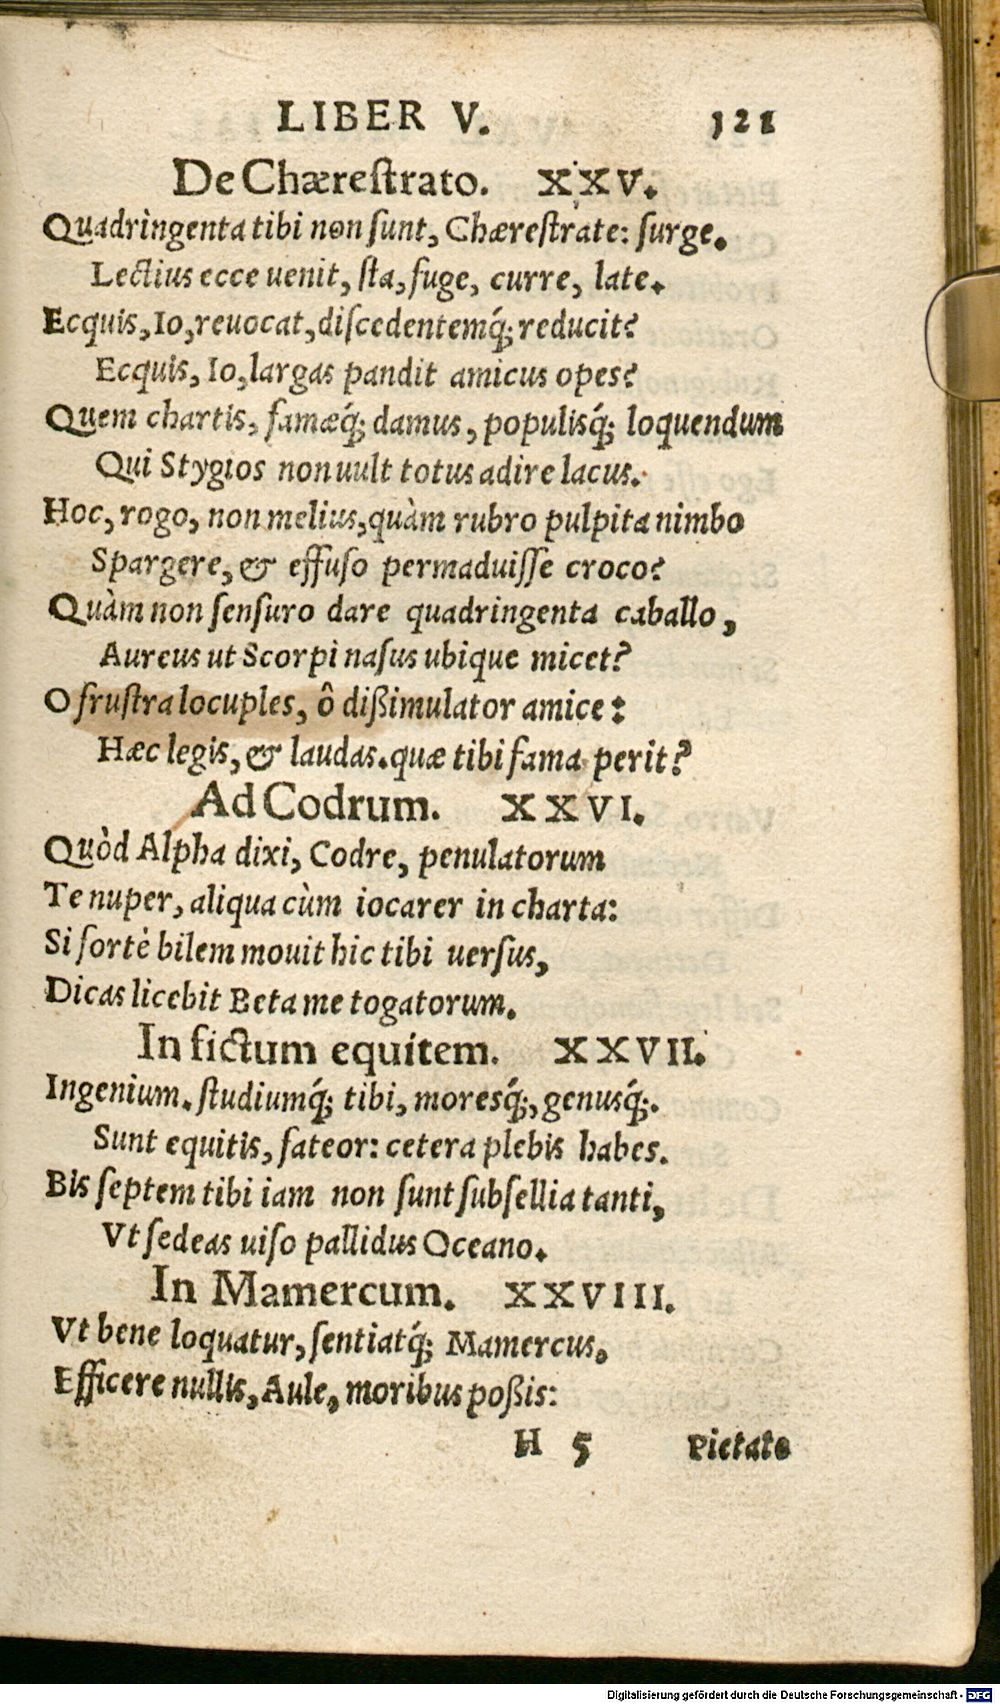 LIBER V. 121
De Chærestrato. XXV.
Quadringenta tibi non sunt, Chærestrate: surge.
Lectius ecce uenit, sta, fuge, curre, late.
Ecquis, Io, reuocat, discedentemq́; reducit?
Ecquis, Io, largas pandit amicus opes?
Quem chartis, famæq́; damus, populisq́; loquendum
Qui Stygios non uult totus adire lacus.
Hoc, rogo, non melius, quàm rubro pulpita nimbo
Spargere, & effuso permaduisse croco?
Quàm non sensuro dare quadringenta caballo,
Aureus ut Scorpi nasus ubique micet?
O frustra locuples, ô dißimulator amice:
Hæc legis, & laudas. quæ tibi fama perit?
Ad Codrum. XXVI.
Quòd Alpha dixi, Codre, penulatorum
Te nuper, aliqua cùm iocarer in charta:
Si fortè bilem mouit hic tibi uersus,
Dicas licebit Beta me togatorum.
In fictum equitem. XXVII.
Ingenium. studiumq́; tibi, moresq́;, genusq́;.
Sunt equitis, fateor: cetera plebis habes.
Bis septem tibi iam non sunt subsellia tanti,
Vt sedeas uiso pallidus Oceano.
In Mamercum. XXVIII.
Vt bene loquatur, sentiatq́; Mamercus,
Efficere nullis, Aule, moribus poßis:
H 5 Pietate
Digitalisierung gefördert durch die Deutsche Forschungsgemeinschaft - DFG